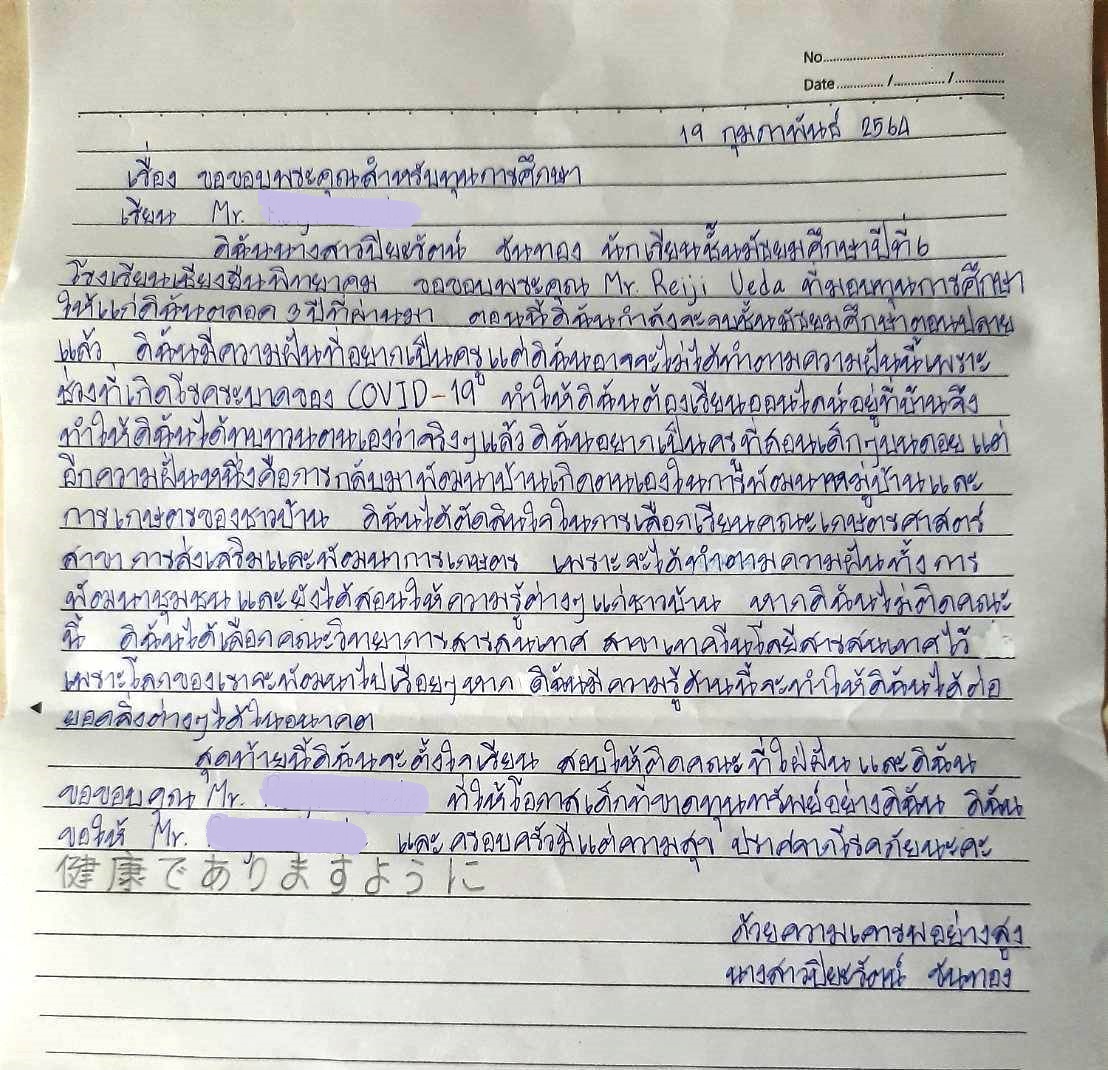 No.
Date / /
19 กุมภาพันธ์ 2564
เรื่อง ขอขอบพระคุณสำหรับทุนการศึกษา
เรียน Mr.
ดิฉันนางสาวปิยะรัตน์ ชันทอง นักเรียนชั้นมัธยมศึกษาปีที่ 6
โรงเรียนเชียงยืนพิทยาคม ขอขอบพระคุณ Mr. Reiji Ueda ที่มอบทุนการศึกษา
ให้แก่ดิฉันตลอด 3 ปีที่ผ่านมา ตอนนี้ดิฉันกำลังจะจบชั้นมัธยมศึกษาตอนปลาย
แล้ว ดิฉันมีความฝันที่อยากเป็นครูแต่ดิฉันอาจจะไม่ได้ทำตามความฝันนี้เพราะ
ช่วงที่เกิดโรคระบาดของ COVID-19 ทำให้ดิฉันต้องเรียนออนไลน์อยู่ที่บ้านจึง
ทำให้ดิฉันได้ทบทวนตนเองว่าจริงๆแล้วดิฉันอยากเป็นครูที่สอนเด็กๆบนดอยแต่
อีกความฝันหนึ่งคือการกลับมาพัฒนาบ้านเกิดตนเองในการพัฒนาหมู่บ้านและ
การเกษตรของชาวบ้าน ดิฉันได้ตัดสินใจในการเลือกเรียนคณะเกษตรศาสตร์
สาขาการส่งเสริมและพัฒนาการเกษตร เพราะจะได้ทำตามความฝันทั้งการ
พัฒนาชุมชนและยังได้สอนให้ความรู้ต่างๆแก่ชาวบ้าน หากดิฉันไม่ติดคณะ
นี้ ดิฉันได้เลือกคณะวิทยาการสารสนเทศ สาขาเทคโนโลยีสารสนเทศไว้
เพราะโลกของเราจะพัฒนาไปเรื่อยๆหาก ดิฉันมีความรู้ด้านนี้จะทำให้ดิฉันได้ต่อ
ยอดสิ่งต่างๆได้ในอนาคต
สุดท้ายนี้ดิฉันจะตั้งใจเรียน สอบให้ติดคณะที่ใฝ่ฝัน และดิฉัน
ขอขอบคุณ Mr. ที่ให้โอกาสเด็กที่ขาดทุนทรัพย์อย่างดิฉัน ดิฉัน
ขอให้ Mr. และครอบครัวมีแต่ความสุข ปราศจากโรคภัยนะคะ
健康でありますように
ด้วยความเคารพอย่างสูง
นางสาวปิยะรัตน์ ชันทอง